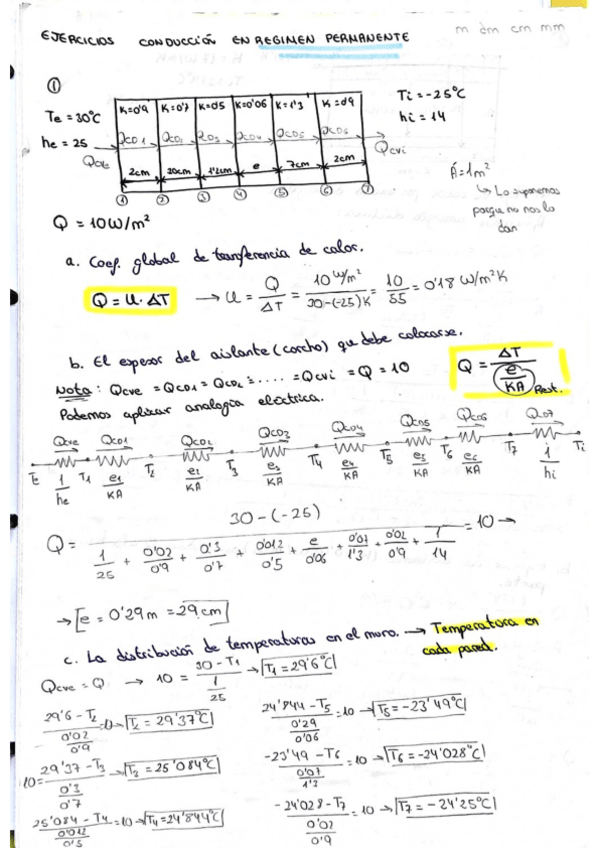 m dm cm mm
EJERCICIOS CONDUCCIÓN EN REGIMEN PERMANENTE
①
Te = 30°C
he = 25
K=0'9 K=0'7 K=0'5 K=0'06 K=1'3 K=0'9
Qcve QCD1 QCD2 QCD3 QCD4 QCD5 QCD6 Qcvi
2cm 30cm 1'2cm e 7cm 2cm
① ② ③ ④ ⑤ ⑥ ⑦
Ti = -25°C
hi = 14
Á = 1m²
↳ Lo suponemos
porque no nos lo
dan
Q = 10W/m²
a. Coef. global de transferencia de calor.
Q = U · ΔT → U = Q/ΔT = 10 W/m² / 30-(-25)K = 10/55 = 0'18 W/m²K
b. El espesor del aislante (corcho) que debe colocarse.
Nota: Qcve = QCD1 = QCD2 = .... = Qcvi = Q = 10
Q = ΔT / (e/KA) Rest.
Podemos aplicar analogía eléctrica.
Qcve QCD1 QCD2 QCD3 QCD4 QCD5 QCD6 QCD7
TE T1 T2 T3 T4 T5 T6 T7 Ti
1/he e1/KA e2/KA e3/KA e4/KA e5/KA e6/KA 1/hi
Q = 30-(-25) / (1/25 + 0'02/0'9 + 0'3/0'7 + 0'012/0'5 + e/0'06 + 0'07/1'3 + 0'02/0'9 + 1/14) = 10 →
→ e = 0'29m = 29cm
c. La distribución de temperaturas en el muro. → Temperatura en
cada pared.
Qcve = Q → 10 = 30-T1 / (1/25) → T1 = 29'6°C
29'6 - T2 / (0'02/0'9) = 10 → T2 = 29'37°C
10 = 29'37 - T3 / (0'3/0'7) → T3 = 25'084°C
25'084 - T4 / (0'012/0'5) = 10 → T4 = 24'844°C
24'844 - T5 / (0'29/0'06) = 10 → T5 = -23'49°C
-23'49 - T6 / (0'07/1'3) = 10 → T6 = -24'028°C
-24'028 - T7 / (0'02/0'9) = 10 → T7 = -24'25°C